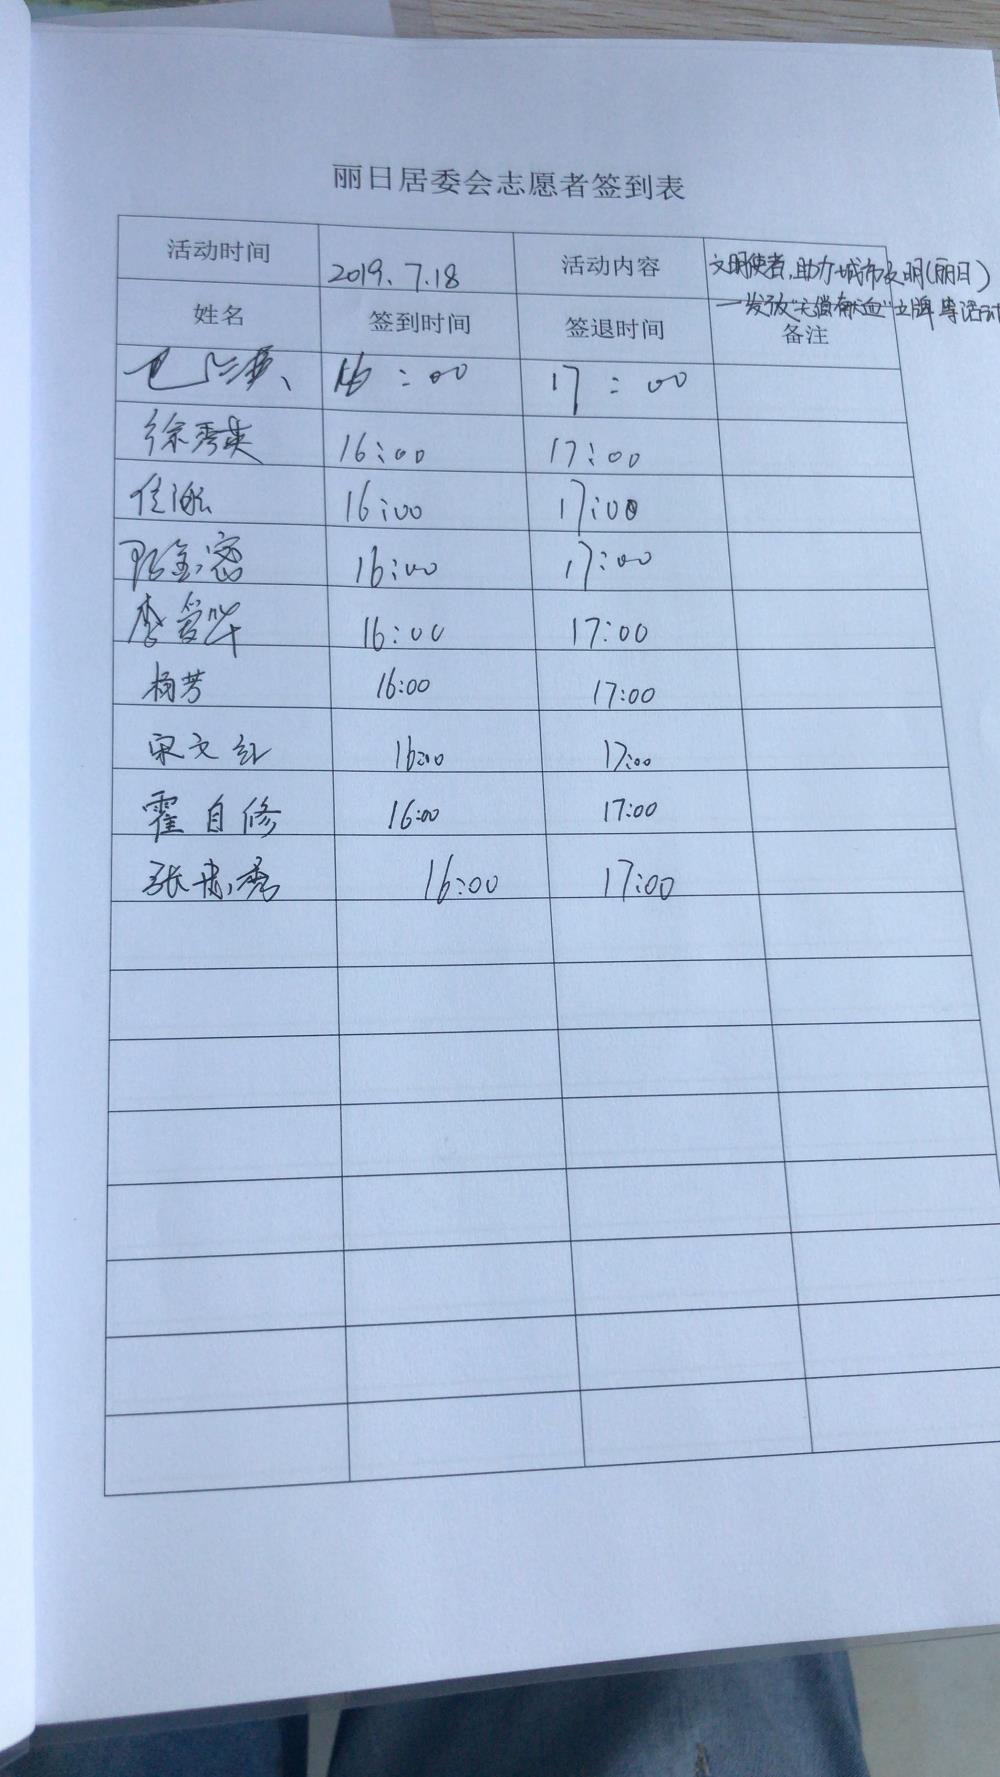 丽日居委会志愿者签到表
活动时间 2019.7.18 活动内容 文明使者,助力城市文明(丽日)
一发放"无偿献血"立牌等活动
姓名 签到时间 签退时间 备注
16:00 17:00
徐秀英 16:00 17:00
16:00 17:00
16:00 17:00
李爱华 16:00 17:00
杨芳 16:00 17:00
宋文红 16:00 17:00
霍自修 16:00 17:00
张 秀 16:00 17:00